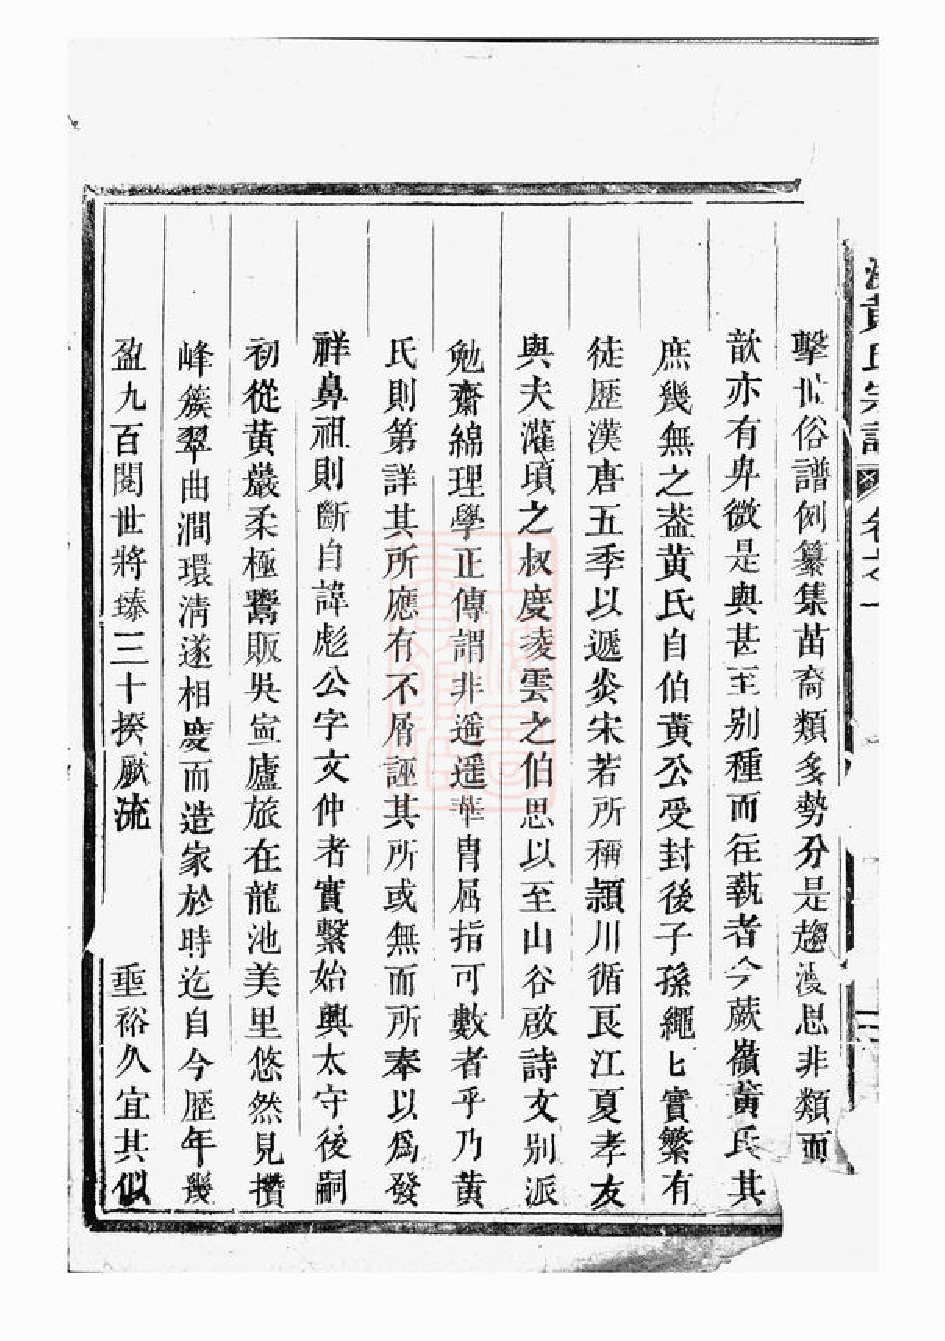 黄氏宗譜 卷之一
擊世俗譜例纂集苗裔類多勢分是趨漫思非類而
歆亦有卑微是與甚至别種而在蓺者今蕨嶺黄氏其
庶幾無之葢黄氏自伯黄公受封後子孫繩匕實繁有
徒歴漢唐五季以遞炎宋若所稱頴川循良江夏孝友
與夫灌瑱之叔慶淩雲之伯思以至山谷啟詩文别派
勉齋綿理學正傳謂非遥遥華胄屈指可數者乎乃黄
氏則第詳其所應有不屑誣其所或無而所奉以爲發
祥鼻祖則斷自諱彪公字文仲者實繫始興太守後嗣
初從黄巖柔極鬻販吳寍廬旅在龍池美里悠然見攢
峰簇翠曲澗環清遂相慶而造家於時迄自今歴年幾
盈九百閲世將臻三十揆厥流 垂裕久宜其似